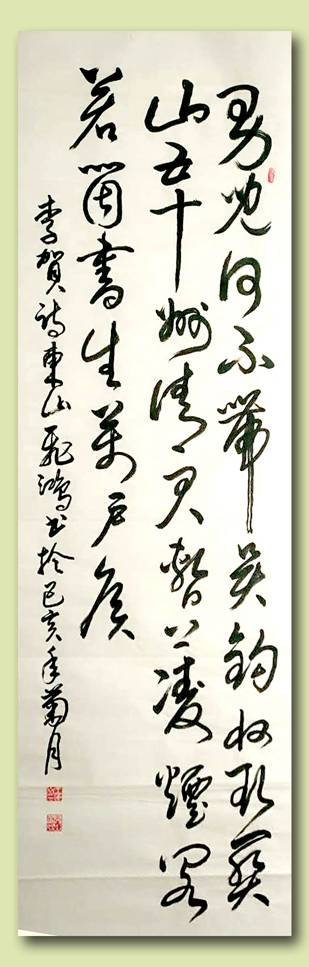 男兒何不帶吳鉤收取關
山五十州請君暫上凌煙閣
若箇書生萬戶侯
李賀詩東山飛鴻書於己亥年菊月